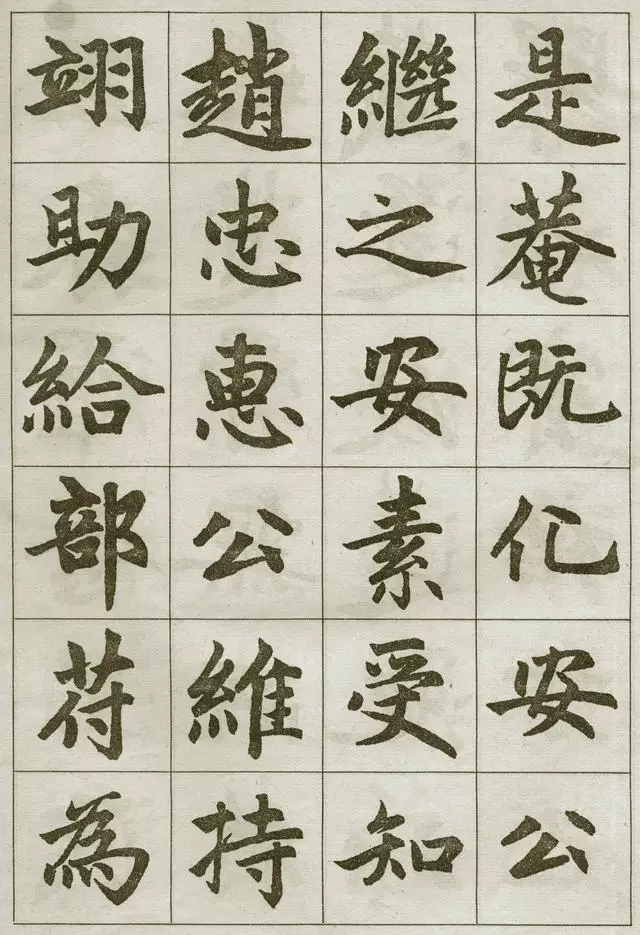 是菴既化安公
繼之安素受知
趙忠惠公維持
翊助給部苻為